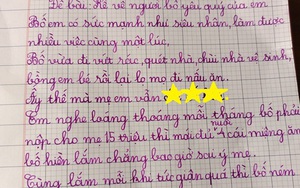 Đề bài: Kể về người bố yêu quý của em
Bố em có sức mạnh như siêu nhân, làm được
nhiều việc cùng một lúc.
Bố vừa đi vứt rác, quét nhà, chùi nhà vệ sinh,
bồng em bé rồi lại lo mọ đi nấu ăn.
Ấy thế mà mẹ em vẫn
Em nghe loáng thoáng mỗi tháng bố phải
nộp cho mẹ 15 triệu thì mới được nuôi 4 cái miệng ăn
bố hiền lắm chẳng bao giờ sai ý mẹ.
Cùng lắm mỗi khi tức giận quá thì bố ném